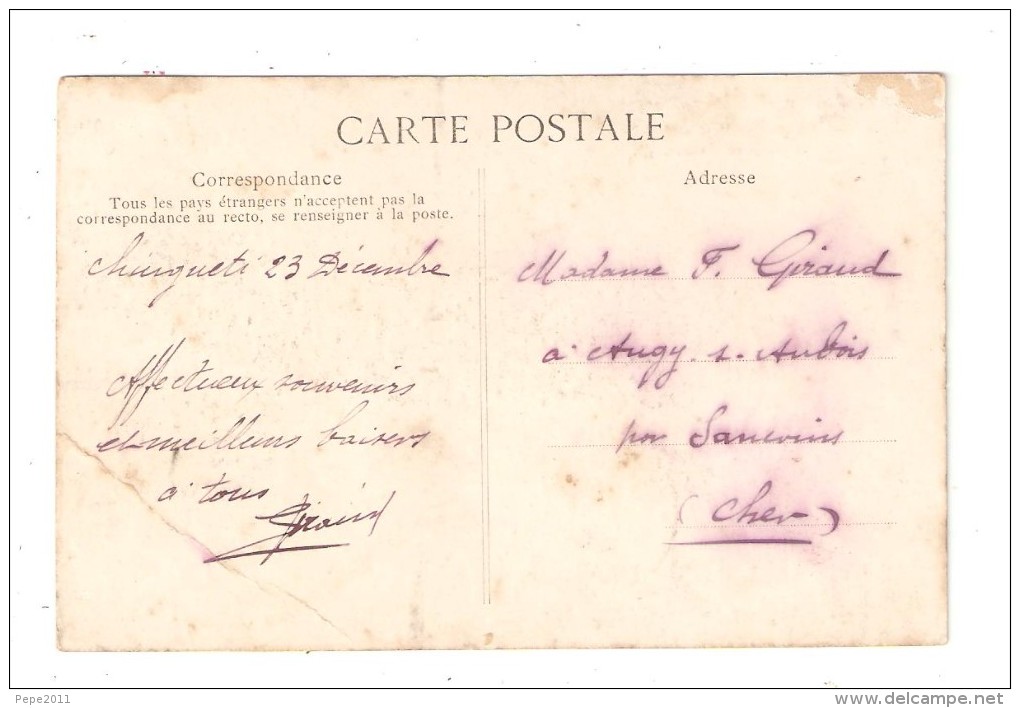 CARTE POSTALE
Correspondance
Tous les pays étrangers n'acceptent pas la
correspondance au recto, se renseigner à la poste.
Chingueti 23 Décembre
Affectueux souvenirs
et meilleurs baisers
à tous
Giraud
Adresse
Madame F. Giraud
à Augy. s. Aubois
par Sancoins
(Cher)
Pepe2011
delcampe.net